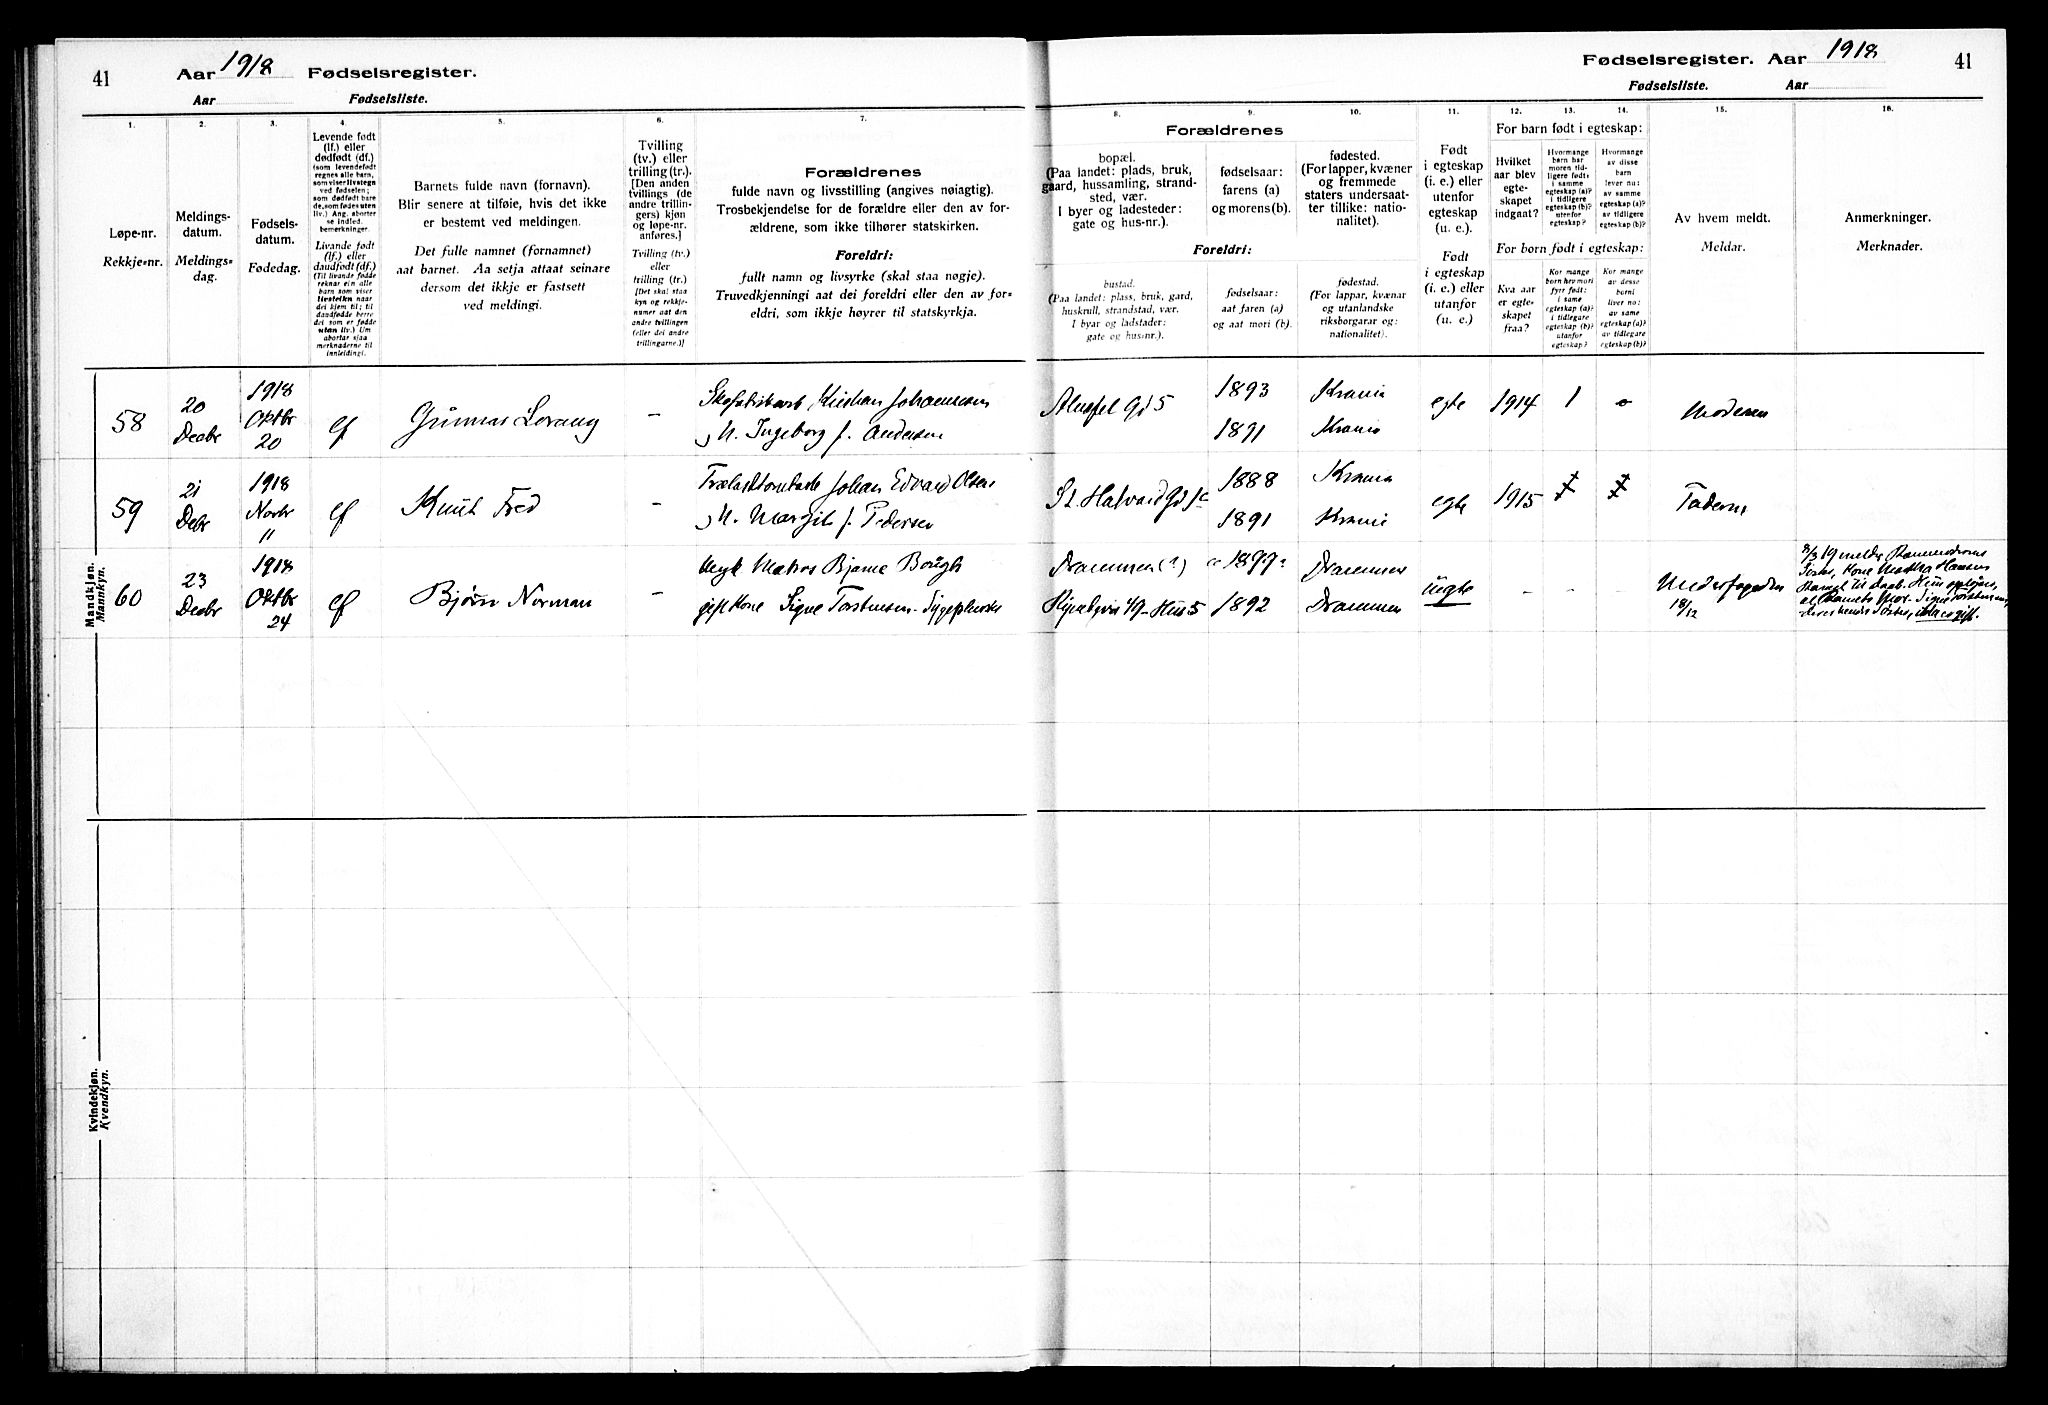 41
Aar 1918 Fødselsregister.
Aar Fødselsliste.
Fødselsregister. Aar 1918
41
Fødselsliste. Aar
1. 2. 3. 4. 5. 6. 7. 8. 9. 10. 11. 12. 13. 14. 15. 16.
Løpe-nr.
Rekkje-nr.
Meldings-
datum.
Meldings-
dag.
Fødsels-
datum.
Fødedag.
Levende født
(lf.) eller
dødfødt (df.)
(som levendefødt
regnes alle barn,
som viser livstegn
ved fødselen;
som dødfødt bare
de, som fødes uten
liv.) Ang. aborter
se indled.
bemerkninger.
Livande født
(lf.) eller
daudfødt (df.)
(Til livande fødde
reknar ein alle
barn som viser
livsteikn naar
dei kjem til; til
daudfødde berre
dei som er fødde
utan liv.) Um
abortar sjaa
merknaderne til
innleidingi.
Barnets fulde navn (fornavn).
Blir senere at tilføie, hvis det ikke
er bestemt ved meldingen.
Det fulle namnet (fornamnet)
aat barnet. Aa setja attaat seinare
dersom det ikkje er fastsett
ved meldingi.
Tvilling
(tv.) eller
trilling (tr.).
[Den anden
tvillings (de
andre trillin-
gers) kjøn
og løpe-nr.
anføres.]
Tvilling (tv.)
eller
trilling (tr.)
[Det skal staa
kyn og rekkje-
numer aat den
andre tvillingen
(eller dei andre
trillingarne.)]
Forældrenes
fulde navn og livsstilling (angives nøiagtig).
Trosbekjendelse for de forældre eller den av for-
ældrene, som ikke tilhører statskirken.
Foreldri:
fullt namn og livsyrke (skal staa nøgje).
Truvedkjenningi aat dei foreldri eller den av for-
eldri, som ikkje høyrer til statskyrkja.
Forældrenes
bopæl.
(Paa landet: plads, bruk,
gaard, hussamling, strand-
sted, vær.
I byer og ladesteder:
gate og hus-nr.).
fødselsaar:
farens (a)
og morens (b).
fødested.
(For lapper, kvæner
og fremmede
staters undersaat-
ter tillike: natio-
nalitet).
Foreldri:
bustad.
(Paa landet: plass, bruk, gard,
huskrull, strandstad, vær.
I byar og ladstader:
gate og hus-nr.).
fødselsaar:
aat faren (a)
og aat mori (b).
fødestad.
(For lappar, kvænar
og utanlandske
riksborgarar og:
nationalitet).
Født
i egteskap
(i. e.) eller
utenfor
egteskap
(u. e.).
Født
i egteskap
(i. e.) eller
utanfor
(u. e.)
For barn født i egteskap:
Hvilket
aar blev
egte-
skapet
indgaat?
Hvormange
barn har
moren tid-
ligere født:
i samme
egteskap (a)?
i tidligere
egteskap (b)?
utenfor
egteskap?
Hvormange
av disse
barn
lever nu:
av samme
egteskap (a)?
av tidligere
egteskap (b)?
For born født i egteskap:
Kva aar
er egte-
skapet
fraa?
Kor mange
born hev mori
fyrr født:
i same
egteskap (a)?
i tidlegare
egteskap (b)?
utanfor
egteskap?
Kor mange
av desse
borni
liver no:
av same
egteskap (a)?
av tidlegare
egteskap (b)?
Av hvem meldt.
Meldar.
Anmerkninger.
Merknader.
Mandkjøn.
Mannkyn.
58
20 Decbr
1918 Oktbr 20
lf
Gunnar Lorang
–
Kristian Johannessen
Ingeborg f. Andersen
5
1893
1891
Krania
Krania
egte
1914
1
o
Moderen
59
21 Decbr
1918 Novbr 11
lf
Knut Fred
–
Johan Edvard Olsen
Margit f. Pedersen
St. Halvard
1888
1891
Krania
Krania
egte
1915
Faderen
60
23 Decbr
1918 Oktbr 24
lf
Bjørn Norman
Matros Bjarne
gift Kone Signe Torstensen
Drammen (?)
Hus 5
1892
Drammen
Drammen
uegte
–
–
–
18/12
19 melder
Kvindekjøn.
Kvendkyn.